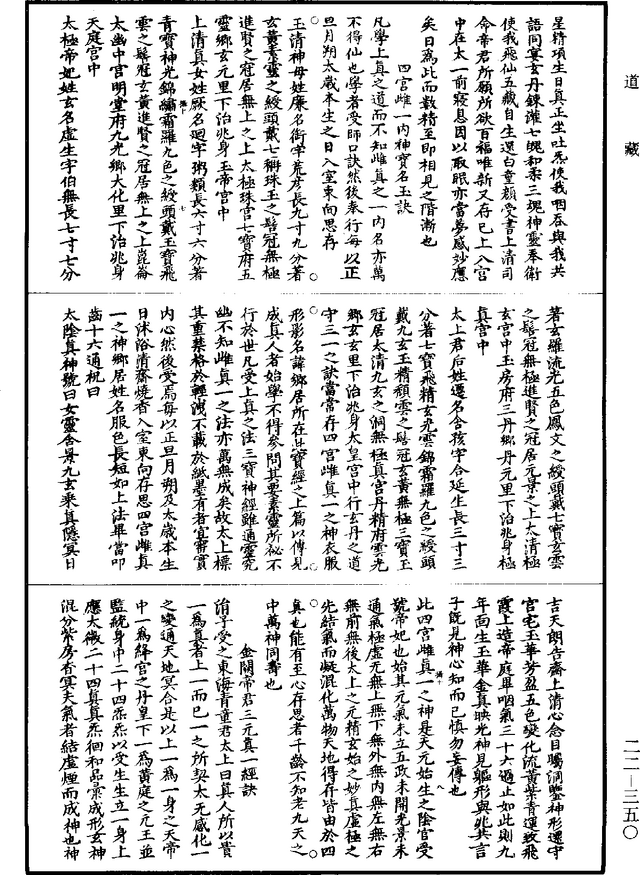 道藏
星精項生日真正坐吐炁使我咽吞與我共
語同宴玄丹鍊濰七魄和柔三魂神靈奉衛
使我飛仙五藏自生還白童顏受書上清司
命帝君所願所欲百福唯新又存已上八宮
中在太一前寢息因以取眠亦當夢感妙應
矣日為此而數精至即相見之階漸也
四宮雌一內神寶名玉訣
凡學上真之道而不知雌真之一內名亦萬
不得仙也學者受師口訣然後奉行每以正
旦月朔太歲本生之日入室東向思存
玉清神母姓廉名銜字荒彥長九寸九分著
玄黃素靈之綬頭戴七稱珠玉之髻冠無極
進賢之冠居無上之上太極珠宮七寶府五
靈鄉玄元里下治兆身玉帝宮中
上清真女姓厥名迴字粥類長六寸六分著
青寶神光錦繡霜羅九色之綬頭戴玉寶飛
雲之髻冠玄黃進賢之冠居無上之上崑崙
太幽中宮明堂府九光鄉大化里下治兆身
天庭宮中
太極帝妃姓玄名虛生字伯無長七寸七分
著玄羅流光五色鳳文之綬頭戴七寶玄雲
之髻冠無極進賢之冠居元景之上太清極
玄宮中玉房府三丹鄉丹元里下治兆身極
真宮中
太上君后姓遷名含孩字合延生長三寸三
分著七寶飛精玄光雲錦霜羅九色之綬頭
戴九玄玉精頹雲之髻冠玄黃無極三寶玉
冠居太清九玄之洞無極真宮丹精府靈光
鄉玄玄里下治兆身太皇宮中行玄丹之道
守三一之訣當常存四宮雌真一之神衣服
形影名諱鄉居所在此寶經之上篇以傳見
成真人者始學不得參問其要素靈所祕不
行於世凡受上真之法三寶神經雖通靈究
幽不知雌真一之法亦萬無成矣故太上標
其重禁格於輕洩不載於紙墨有者宜審實
內心然後受焉每以正旦月朔及太歲本生
日沐浴清齋燒香入室東向存思四宮雌真
一之神鄉居姓名服色長短如上法畢當叩
齒十六通祝曰
太陰真神號曰女靈含景九玄乘真隱冥日
吉天朗告齋上清心念目矚洞鑒神形還守
宮宅玉華芳盈五色變化流黃紫青運致飛
霞上造帝庭畢咽氣三十六過止如此則九
年面生玉華金真映光神見軀形與兆共言
子既見神心知而已慎勿妄傳也
此四宮雌真一之神是天元始生之陰宮受
號帝妃也始其元氣未立五政未開光景未
通氣極虛无無上無下無外無內無左無右
無前無後太上之元精玄始之妙真虛極之
先結氣而凝混化萬物天地得存皆由於四
真也能有至心存思者千齡不知老九天之
中萬神同壽也
金闕帝君三元真一經訣
涓子受之東海青童君太上曰真人所以貴
一為真者上一而已一之所契太无感化一
之變通天地冥合是以上一為一身之天帝
中一為絳宮之丹皇下一為黃庭之元王並
監統身中二十四炁炁以受生生立一身上
應太微二十四真真炁徊和品彙成形玄神
混分紫房杳冥夫氣者結虛煙而成神也神
二二—三五〇